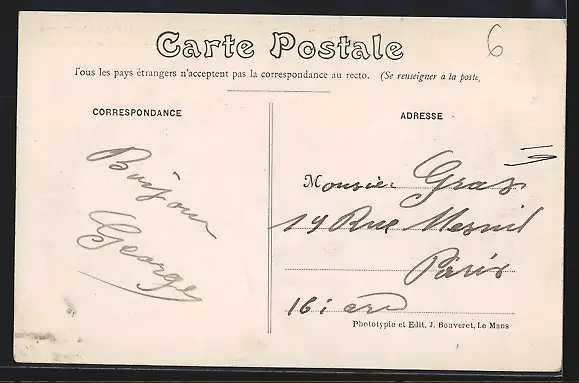 6
Carte Postale
Tous les pays étrangers n'acceptent pas la correspondance au recto. (Se renseigner à la poste.
CORRESPONDANCE
ADRESSE
Bonjour
Georges
Monsieur
19 Rue Mesnil
Paris
16i ard
Phototypie et Edit. J. Bouveret, Le Mans